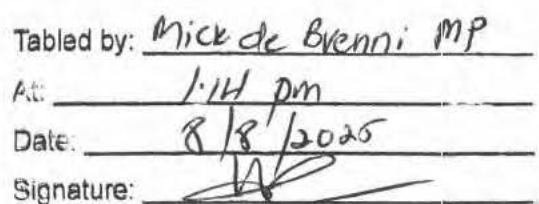 Tabled by: Mick de Brenni MP
At: 1:14 pm
Date: 8/8/2025
Signature: